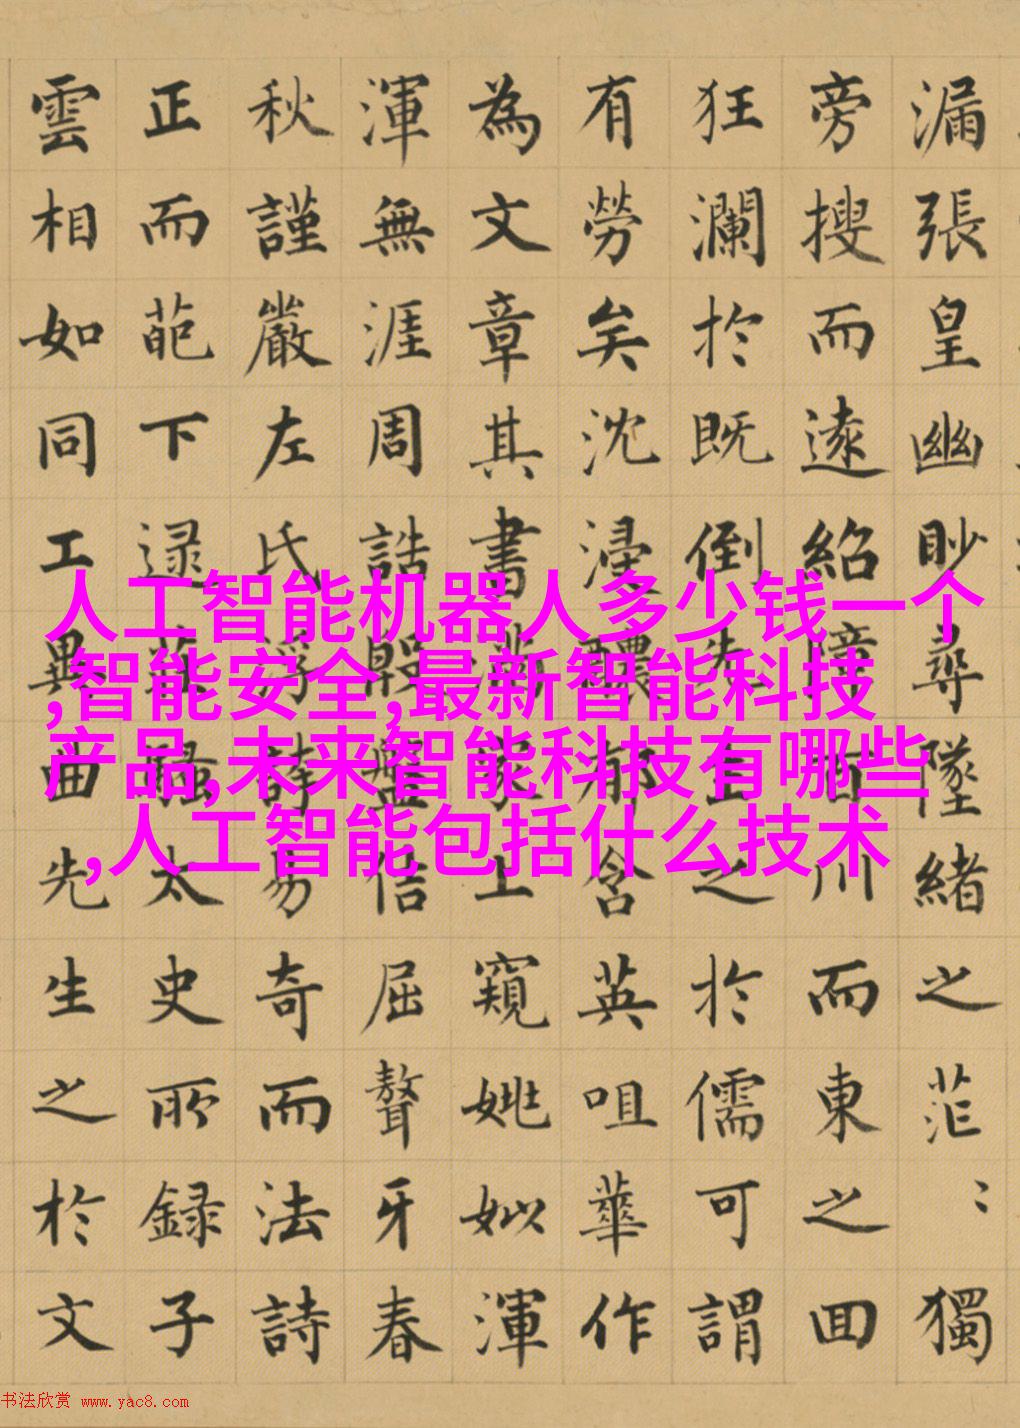 漏張皇幽眇尋墜緒之茫〻獨
旁搜而遠紹障百川而東之回
狂瀾於既倒先生之於儒可謂
有勞矣沈浸醲郁含英咀華作
為文章其書滿家上窺姚姒渾
渾無涯周誥殷盤佶屈聱牙春
秋謹嚴左氏浮誇易奇而法詩
正而葩下逮莊騷太史所録子
雲相如同工異曲先生之於文
人工智能机器人多少钱一个
,智能安全,最新智能科技
产品,未来智能科技有哪些
,人工智能包括什么技术
书法欣赏 www.yac8.com